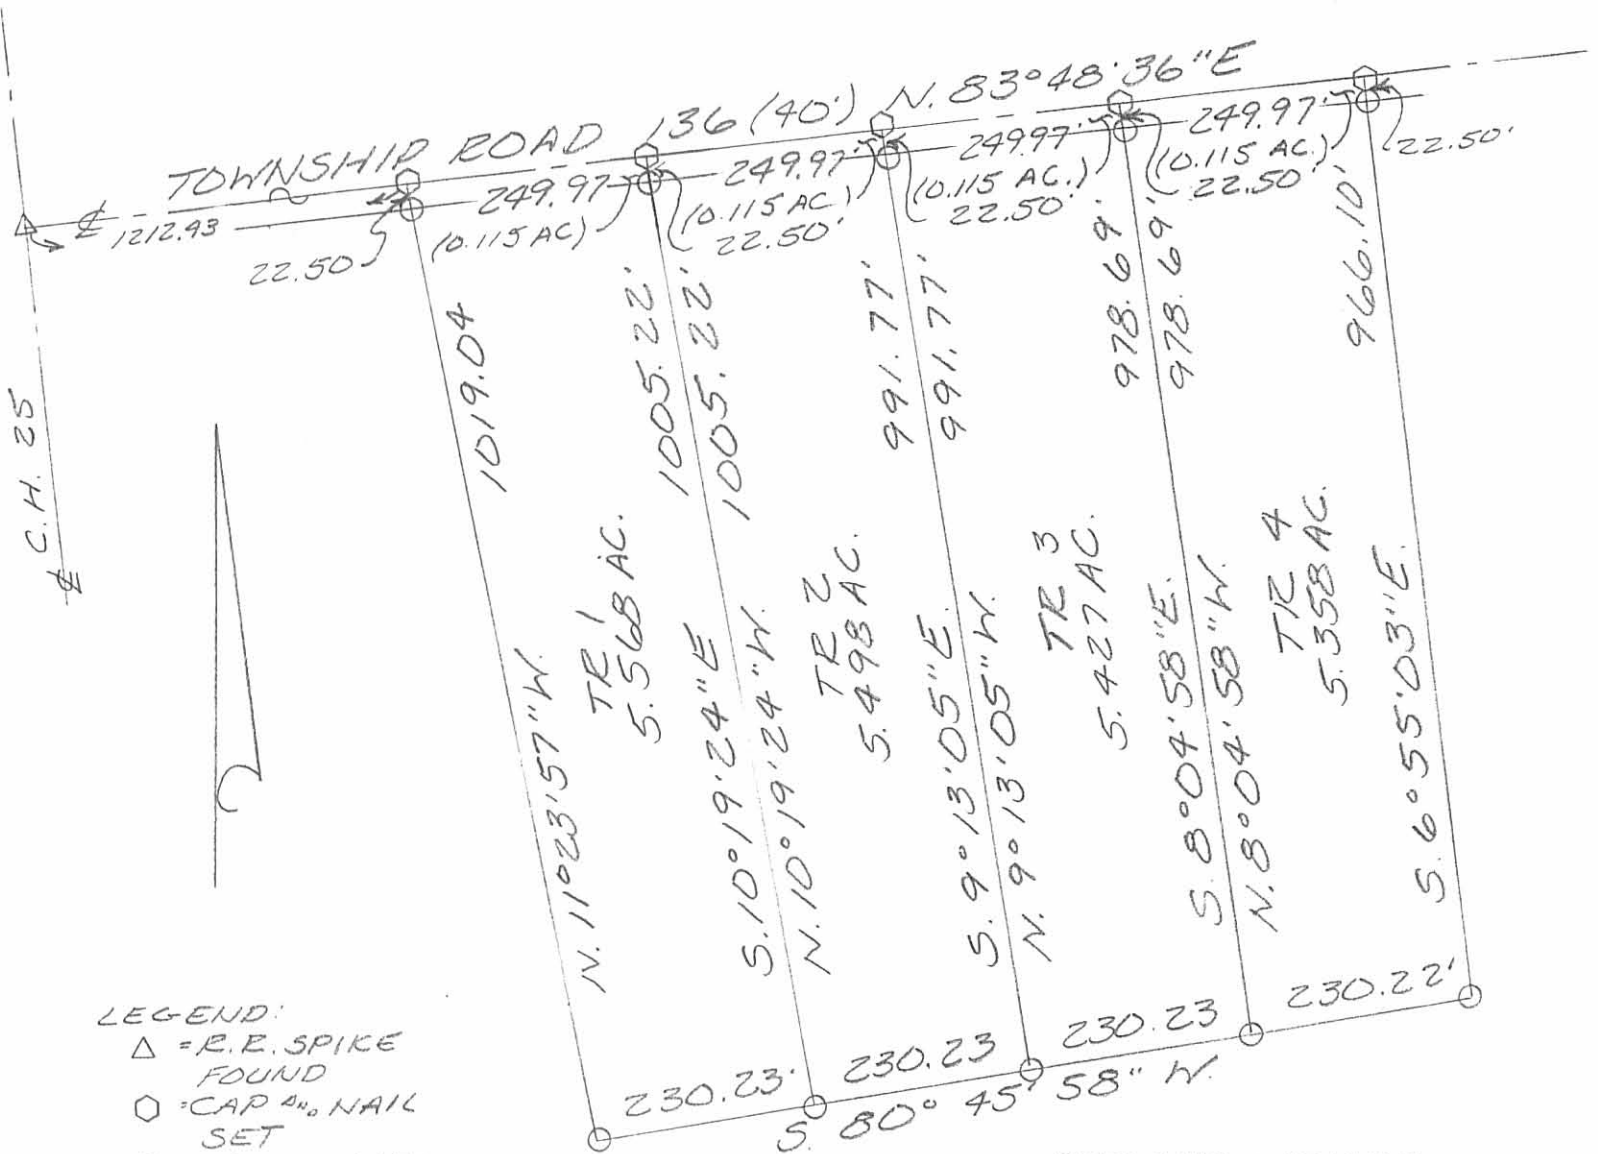 TOWNSHIP ROAD 136 (40') N. 83°48'36"E
℄ 1212.93
22.50
249.97
(0.115 AC)
249.97'
(0.115 AC.)
22.50'
249.97'
(0.115 AC.)
22.50'
249.97'
(0.115 AC.)
22.50'
22.50'
C.H. 25
℄
1019.04
N. 11°23'57"W.
TR 1
5.568 AC.
1005.22'
S. 10°19'24"E
1005.22'
N. 10°19'24"W.
TR 2
5.498 AC.
991.77'
S. 9°13'05"E.
991.77'
N. 9°13'05"W.
TR 3
5.427 AC.
978.69'
S. 8°04'58"E.
978.69'
N. 8°04'58"W.
TR 4
5.358 AC.
966.10'
S. 6°55'03"E.
230.23'
230.23
230.23
230.22'
S. 80° 45' 58" W.
LEGEND:
△ = R.R. SPIKE
FOUND
⬡ = CAP AND NAIL
SET